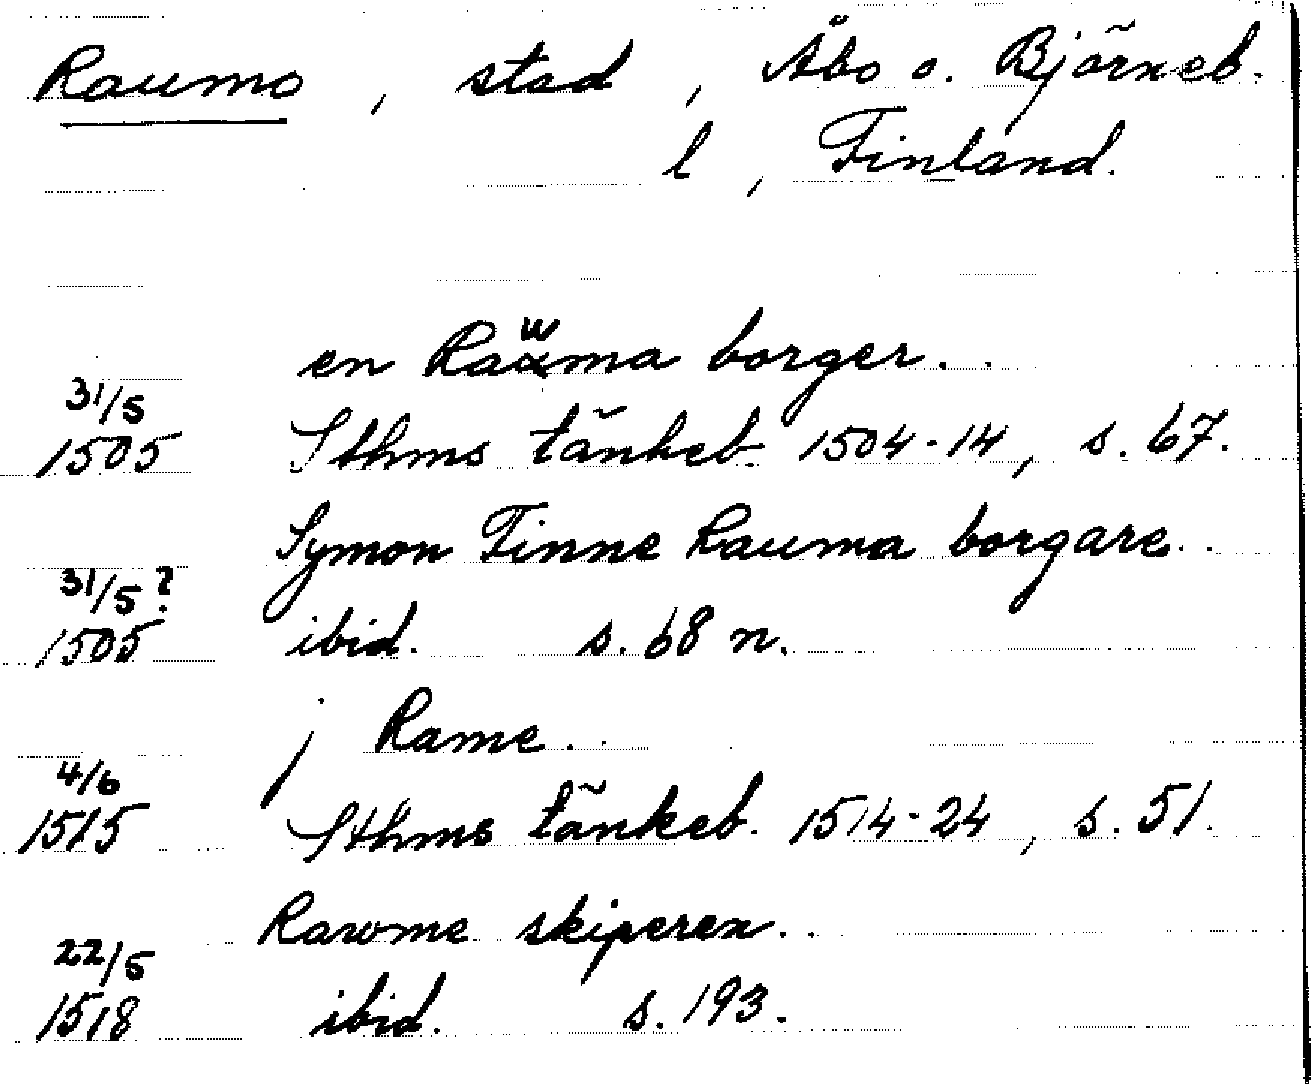 Raumo, stad, Åbo o. Björneb.
l, Finland.
en Rawma borger..
31/5
1505 Sthms tänkeb. 1504-14, s. 67.
Symon Finne Rauma borgare..
31/5?
1505 ibid. s. 68 n.
j Rame..
4/6
1515 Sthms tänkeb. 1514-24, s. 51.
Rawme skiperen..
22/5
1518 ibid. s. 193.